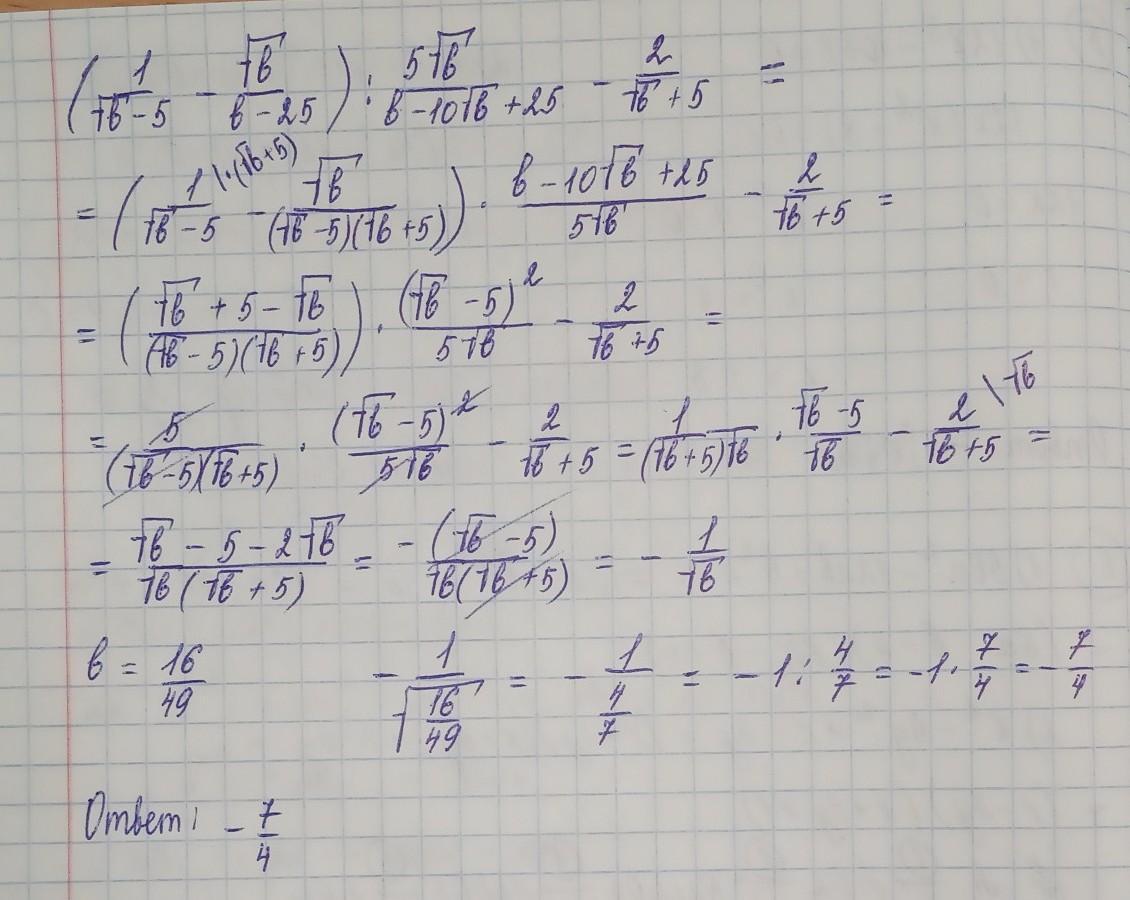 (1/(√b-5) - √b/(b-25)) : 5√b/(b-10√b+25) - 2/(√b+5) =
= (1/(√b-5) \·(√b+5) - √b/((√b-5)(√b+5))) · (b-10√b+25)/(5√b) - 2/(√b+5) =
= ((√b+5-√b)/((√b-5)(√b+5))) · (√b-5)²/(5√b) - 2/(√b+5) =
= 5/((√b-5)(√b+5)) · (√b-5)²/(5√b) - 2/(√b+5) = 1/((√b+5)√b) · (√b-5)/√b - 2/(√b+5) \√b =
= (√b-5-2√b)/(√b(√b+5)) = -(√b-5)/(√b(√b+5)) = -1/√b
b = 16/49    -1/√(16/49) = -1/(4/7) = -1 : 4/7 = -1 · 7/4 = -7/4
Ответ: -7/4